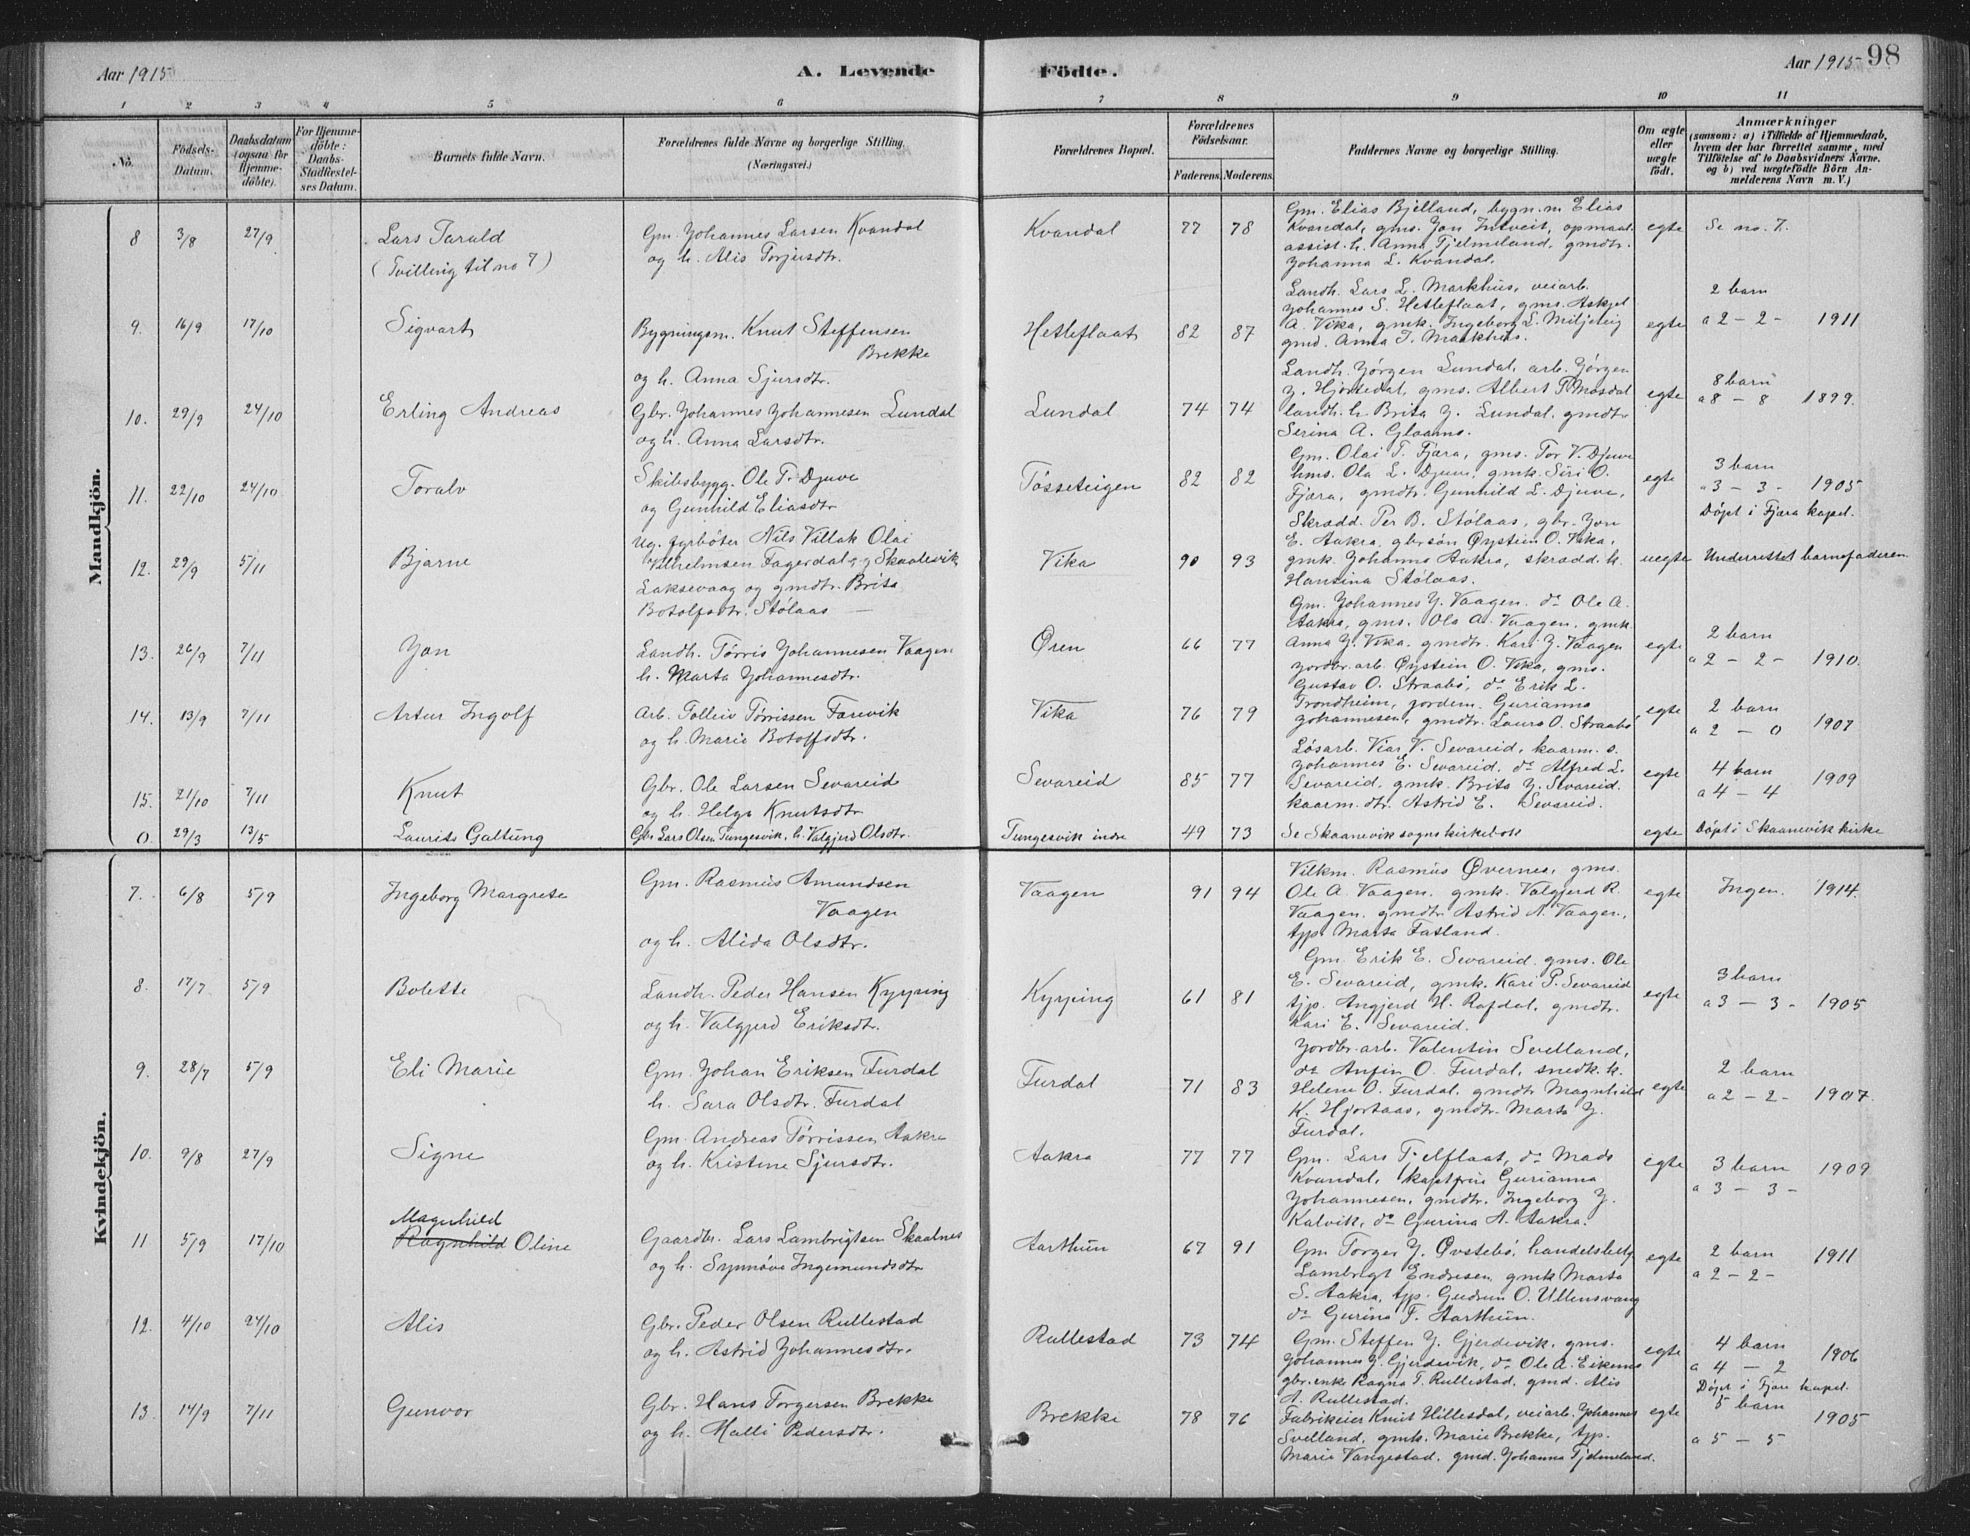 Aar 1915
A. Levende
Födte.
Aar 1915
98
1 2 3 4 5 6 7 8 9 10 11
No.
Födsels-
Datum.
Daabsdatum
(ogsaa for
Hjemme-
döbte).
For Hjemme-
döbte:
Daabs-
Stadfæstel-
ses Datum.
Barnets fulde Navn.
Forældrenes fulde Navne og borgerlige Stilling.
(Næringsvei.)
Forældrenes Bopæl.
Forældrenes
Födselsaar.
Faderens. Moderens.
Faddernes Navne og borgerlige Stilling.
Om ægte
eller
uægte
födt.
Anmærkninger
(saasom: a) i Tilfælde af Hjemmedaab,
hvem der har forrettet samme, med
Tilföielse af to Daabsvidners Navne,
og b) ved uægtefödte Börn An-
melderens Navn m. V.)
Mandkjön.
8 3/8 27/9 Lars Tarald
(Tvilling til no 7)
Gm. Johannes Larsen Kvandal
og h. Alis Torjusdtr.
Kvandal 77 78
Gm. Elias Bjelland, bygn.m Elias
Kvandal, gms. Jon Intveit, opmaal.
assist. h. Anna Tjelmeland, gmdtr.
Johanna L. Kvandal.
egte Se no. 7.
9. 16/9 17/10 Sigvart
Bygningsm. Knut Steffensen
Brekke
og h. Anna Sjursdtr.
Hetleflaat 82 87
Landh. Lars L. Markhus, veiarb.
Johannes S. Hetleflaat, gms. Askjel
A. Vika, gmk. Ingeborg L. Miljeteig
gmd. Anna I. Markhus.
egte 2 barn
a 2 – 2 – 1911
10. 29/9 24/10 Erling Andreas
Gbr. Johannes Johannesen Lundal
og h. Anna Larsdtr.
Lundal 74 74
Landh. Jørgen Lundal, arb. Jørgen
J. Hjortedal, gms. Albert T. Mosdal
landh. h. Brita J. Lundal, gmdtr
Serina A.
egte 8 barn
a 8 – 8 1899.
11. 22/10 24/10 Toralv
Skibsbygg. Ole T. Djuve
og Gunhild Eliasdtr
Tösseteigen 82 82
Gm. Olai T. Fjæra, gms. Tor V. Djuve
hms. Ola L. Djuve, gmk. Siri O.
Fjæra, gmdtr. Gunhild L. Djuve,
egte 3 barn
a 3 – 3 – 1905
Döpt i Fjæra kapel.
12. 29/9 5/11 Bjarne
Ug. fyrböter Nils Villak Olai
Vilhelmsen Fagerdal, g Skaalevik
Laksevaag og gmdtr. Brita
Botolfsdtr. Stölaas –
Vika 90 93
Skradd. Per B. Stölaas, gbr. Jon
E. Aakra, gbrsön Øystein O. Vika,
gmk. Johanna Aakra, skradd. h.
Hansina Stölaas.
uegte Underrettet barnefaderen
13. 26/9 7/11 Jon
Landh. Tørris Johannesen Vaagen
h. Marta Johannesdtr.
Øren 66 77
Gm. Johannes J. Vaagen. do Ole A.
Aakra, gms. Ole A. Vaagen, gmk
Anna J. Vika, gmdtr. Kari J. Vaagen
egte 2 barn
a 2 – 2 – 1910.
14. 13/9 7/11 Artur Ingolf
Arb. Tolleiv Tørrissen Farevik
og h. Marie Botolfsdtr.
Vika 76 79
Jordbr. arb. Øystein O. Vika, gms.
Gustav O. Straabö, do Erik L.
Trondheim, jordem. Gurianna
Johannesen, gmdtr. Laura O. Straabö
egte 2 barn
a 2 – 0 1907
15. 21/10 7/11 Knut
Gbr. Ole Larsen Sevareid
og h. Helga Knutsdtr.
Sevareid 85 77
Lösarb. Vier V. Sevareid, kaarm. s.
Johannes E. Sevareid, do Alfred L.
Sevareid, gmk. Brita J. Sevareid.
kaarm. dtr. Astrid E. Sevareid.
egte 4 barn
a 4 – 4 1909
0. 29/3 13/5 Laurits Galtung
Gbr. Lars Olsen Tungesvik, h. Valgjerd Olsdtr.
Tungesvik indre 49 73
Se Skaanevik sogns kirkebok
egte Döpt i Skaanevik kirke
Kvindekjön.
7. 6/8 5/9 Ingeborg Margrete
Gm. Rasmus Amundsen
Vaagen
og h. Alida Olsdtr.
Vaagen 91 94
Vilkm. Rasmus Øvernes, gms.
Ole A. Vaagen. gmk. Valgjerd R.
Vaagen. gmdtr Astrid A. Vaagen,
tjp. Marta Fatland.
egte Ingen. 1914.
8. 17/7 5/9 Bolette
Landh. Peder Hansen Kyrping
og h. Valgjerd Eriksdtr.
Kyrping 61 81
Gm. Erik E. Sevareid. gms. Ole
E. Sevareid, gmk. Kari P. Sevareid
tjp. Angjerd H. Rafdal, gmdtr.
Kari E. Sevareid.
egte 3 barn
a 3 – 3 – 1905
9. 28/7 5/9 Eli Marie
Gm. Johan Eriksen Furdal
h. Sara Olsdtr. Furdal
Furdal 71 83
Jordbr. arb. Valentin Svelland,
do Anfin O. Furdal, snedk. h.
Helene O. Furdal, gmdtr Magnhild
K. Hjortaas, gmdtr. Marta J.
Furdal.
egte 2 barn
a 2 – 2 – 1907.
10. 9/8 27/9 Signe
Gm. Andreas Tørrissen Aakra
og h. Kristine Sjursdtr.
Aakra 77 77
Gm. Lars Tjelflaat, do Mads
Kvandal, kaptfrue Gurianna
Johannesen, gmdtr. Ingeborg J.
Kalvik, do Gurina A. Aakra.
egte 3 barn 1909
a 3 – 3 –
11 5/9 17/10 Magnhild
Ragnhild Oline
Gaardbr. Lars Lambrigtsen Skaalnes
og h. Synnöve Ingemundsdtr
Aarthun 67 91
Gm Torger J. Øvstebö, handelsbetj
Lambrigt Endresen, gmk Marta
S. Aakra, tjp. Gudrun O. Ullensvang
do Gurina T. Aarthun.
egte 2 barn 1911
a 2 – 2 –
12. 4/10 24/10 Alis
Gbr. Peder Olsen Rullestad
og h. Astrid Johannesdtr.
Rullestad 73 74
Gm. Steffen J. Gjerdevik, gms.
Johannes J. Gjerdevik, do Ole A. Eikemo
gbr. enke Ragna T. Rullestad, gmd. Alis
A. Rullestad.
egte 4 barn 1906
a 4 – 2
Döpt i Fjære kapel.
13. 14/9 7/11 Gunvor
Gbr. Hans Torgersen Brekke
og h. Malli Pedersdtr.
Brekke 78 76
Fabrikeier Knut Hillesdal, veiarb. Johannes
Svelland, gmk. Marie Brekke, tjp.
Marie Vangestad. gmd. Johanna Tjelmeland.
egte 5 barn 1905
a 5 – 5